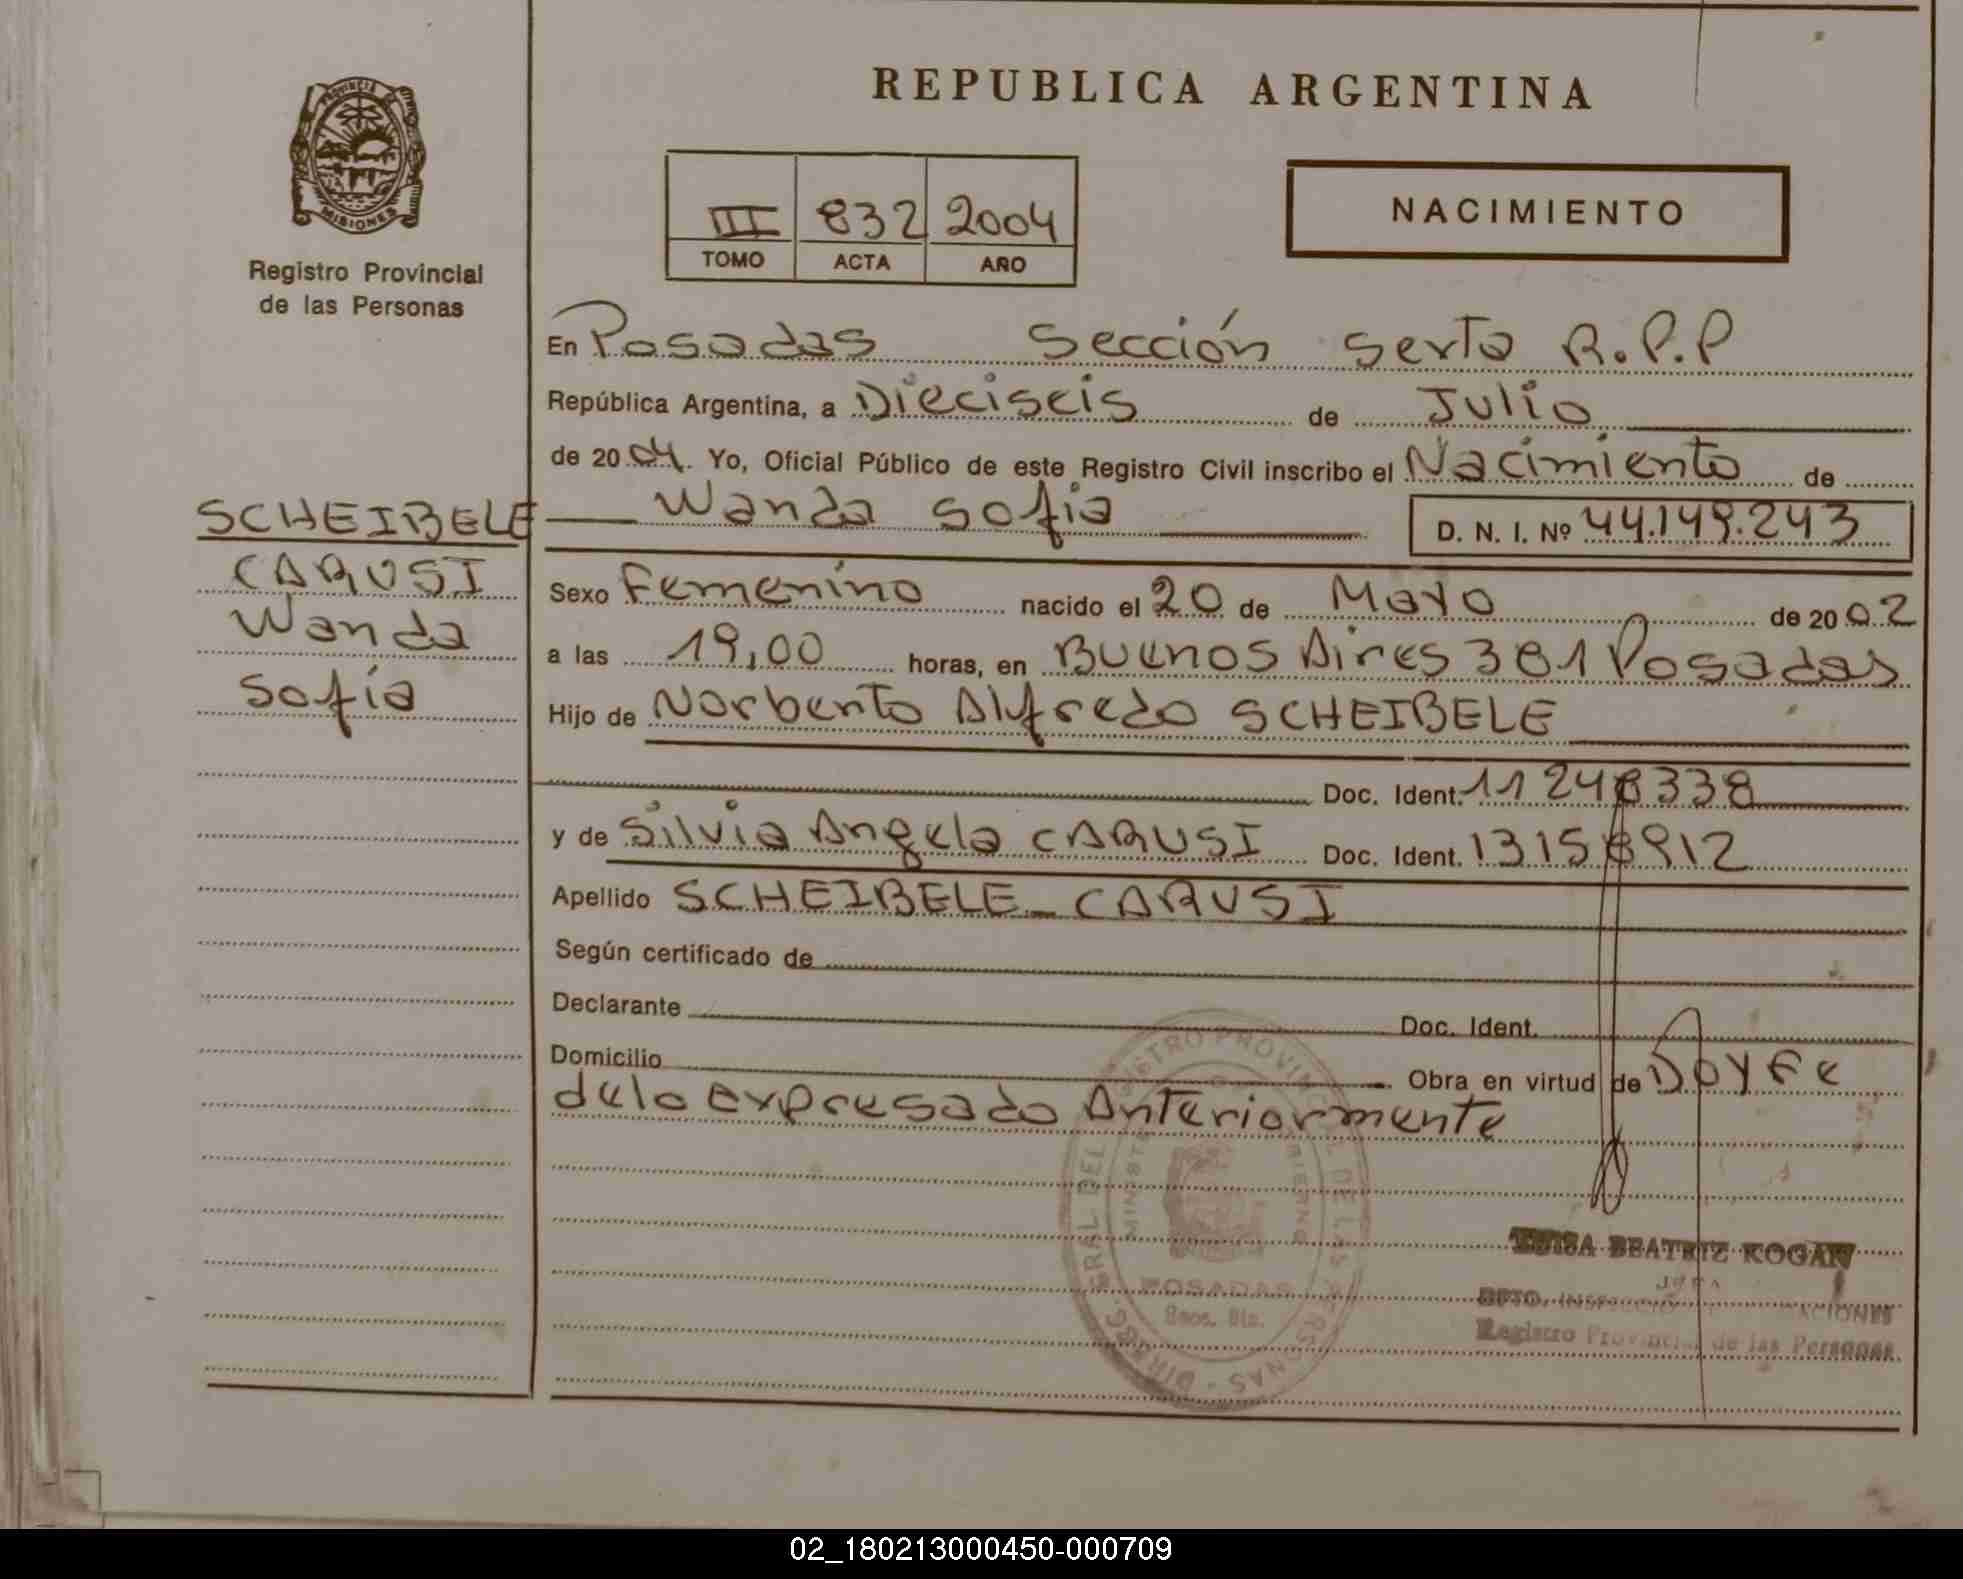 REPUBLICA ARGENTINA
PROVINCIA DE
MISIONES
Registro Provincial
de las Personas
III 832 2004
TOMO ACTA AÑO
NACIMIENTO
En Posadas Sección Sexta R.P.P
República Argentina, a Dieciseis de Julio
de 2004. Yo, Oficial Público de este Registro Civil inscribo el Nacimiento de
Wanda Sofía D. N. I. Nº 44.149.243
SCHEIBELE
CARUSI
Wanda
Sofía
Sexo Femenino nacido el 20 de Mayo de 2002
a las 19,00 horas, en Buenos Aires 381 Posadas
Hijo de Norberto Alfredo SCHEIBELE
Doc. Ident. 11248338
y de Silvia Angela CARUSI Doc. Ident. 13158912
Apellido SCHEIBELE CARUSI
Según certificado de
Declarante Doc. Ident.
Domicilio Obra en virtud de DOY Fe
delo expresado Anteriormente
POSADAS
LUISA BEATRIZ KOGAN
DPTO.
Registro Provincial de las Personas
02_180213000450-000709